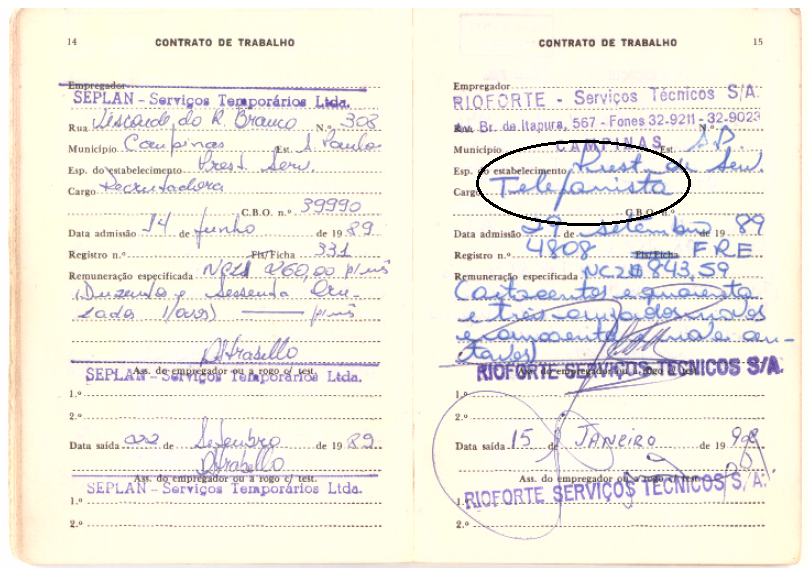 14 CONTRATO DE TRABALHO
Empregador
SEPLAN - Serviços Temporários Ltda.
Rua Visconde do R. Branco N.º 303
Município Campinas Est. S. Paulo
Esp. do estabelecimento Prest. Serv.
Cargo Recrutadora
C.B.O. n.º 39990
Data admissão 14 de junho de 1989
Registro n.º Fls/Ficha 331
Remuneração especificada NCz$ 260,00 p/mês
(Duzentos e sessenta Cru-
zados Novos) p/mês
Ass. do empregador ou a rogo c/ test.
SEPLAN - Serviços Temporários Ltda.
1.º
2.º
Data saída 02 de Setembro de 1989
Ass. do empregador ou a rogo c/ test.
SEPLAN - Serviços Temporários Ltda.
1.º
2.º
CONTRATO DE TRABALHO 15
Empregador
RIOFORTE - Serviços Técnicos S/A.
Rua Br. de Itapura, 567 - Fones 32-9211 - 32-9023 N.º
Município CAMPINAS Est. S.P.
Esp. do estabelecimento Prest. de Serv.
Cargo Telefonista
C.B.O. n.º
Data admissão 29 de setembro de 1989
Registro n.º 4808 Fls/Ficha FRE
Remuneração especificada NCz$ 843,59
e três cruzados novos
e cinquenta e nove cen-
tavos)
Ass. do empregador ou a rogo c/ test.
RIOFORTE SERVIÇOS TÉCNICOS S/A.
1.º
2.º
Data saída 15 de JANEIRO de 19
Ass. do empregador ou a rogo c/ test.
RIOFORTE SERVIÇOS TÉCNICOS S/A.
1.º
2.º